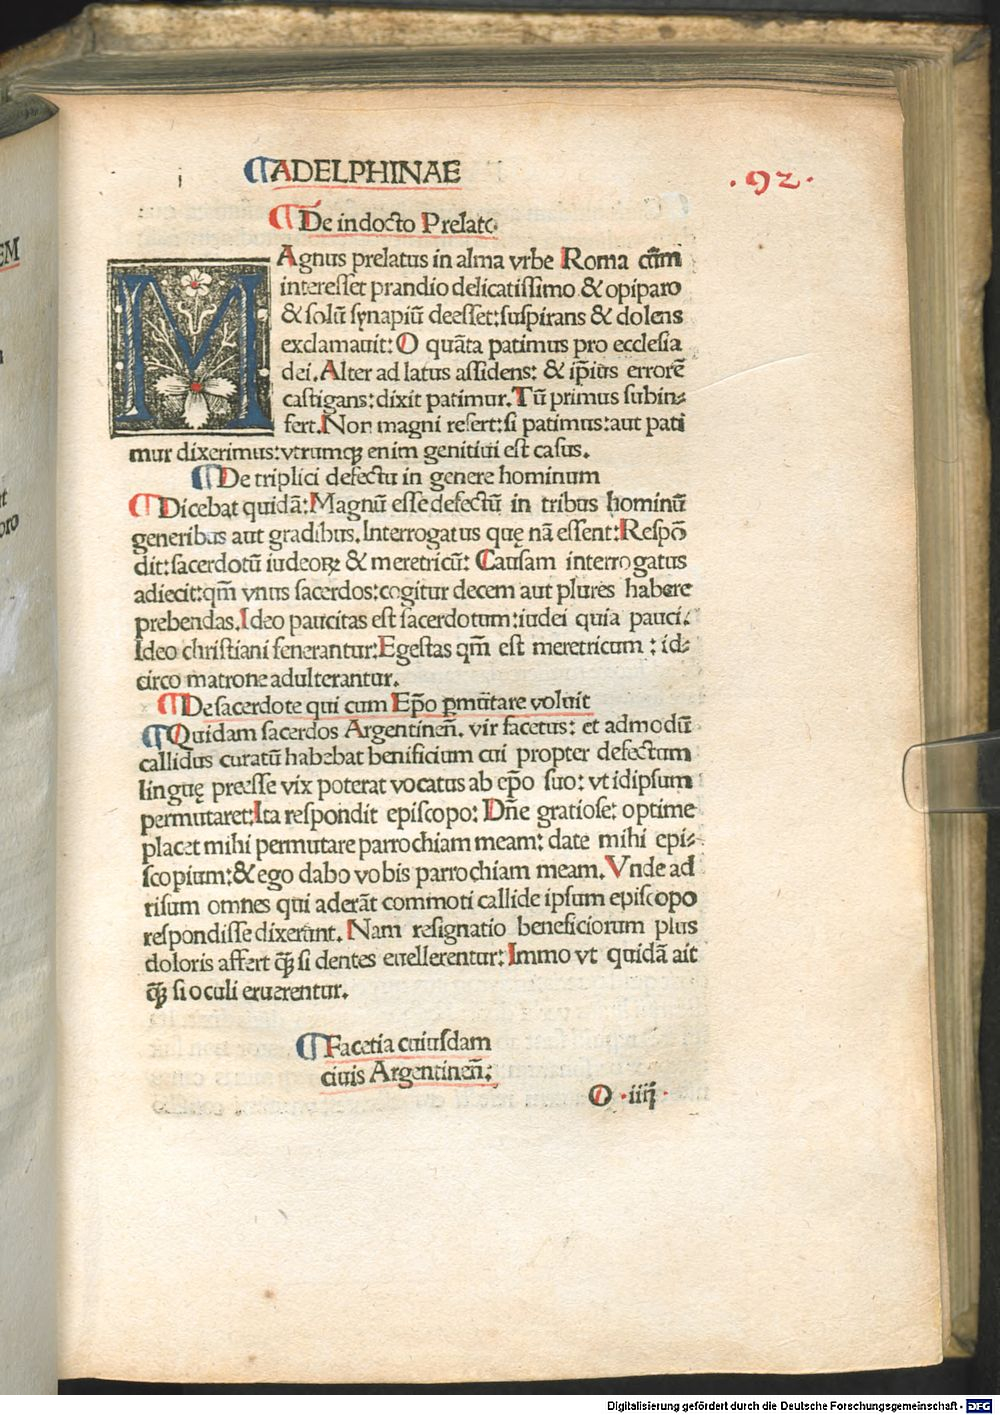 EM
¶ADELPHINAE
.92.
¶De indocto Prelato
MAgnus prelatus in alma vrbe Roma cũm
interesset prandio delicatissimo & opiparo
& solũ synapiũ deesset: suspirans & dolens
exclamauit: O quãta patimus pro ecclesia
dei. Alter ad latus assidens: & ip̃ius errorẽ
castigans: dixit patimur. Tũ primus subin⸗
fert. Non magni refert: si patimus: aut pati
mur dixerimus: vtrumqꝫ enim genitiui est casus.
¶De triplici defectu in genere hominum
¶Dicebat quidã: Magnũ esse defectũ in tribus hominũ
generibus aut gradibus. Interrogatus quę nã essent: Respõ
dit: sacerdotũ iudeoꝝ & meretricũ: Causam interrogatus
adiecit: qm̃ vnus sacerdos: cogitur decem aut plures habere
prebendas. Ideo paucitas est sacerdotum: iudei quia pauci.
Ideo christiani fenerantur: Egestas qm̃ est meretricum: id⸗
circo matrone adulterantur.
¶De sacerdote qui cum Ep̃o ꝑmũtare voluit
¶Quidam sacerdos Argentineñ. vir facetus: et admodũ
callidus curatũ habebat benificium cui propter defectum
linguę preesse vix poterat vocatus ab ep̃o suo: vt idipsum
permutaret: Ita respondit episcopo: Dñe gratiose: optime
placet mihi permutare parrochiam meam: date mihi epi⸗
scopium: & ego dabo vobis parrochiam meam. Vnde ad
risum omnes qui aderãt commoti callide ipsum episcopo
respondisse dixerunt. Nam resignatio beneficiorum plus
doloris affert qꝫ̃ si dentes euellerentur: Immo vt quidã ait
qꝫ̃ si oculi eruerentur.
¶Facetia cuiusdam
ciuis Argentineñ:
O .iiij.
Digitalisierung gefördert durch die Deutsche Forschungsgemeinschaft - DFG